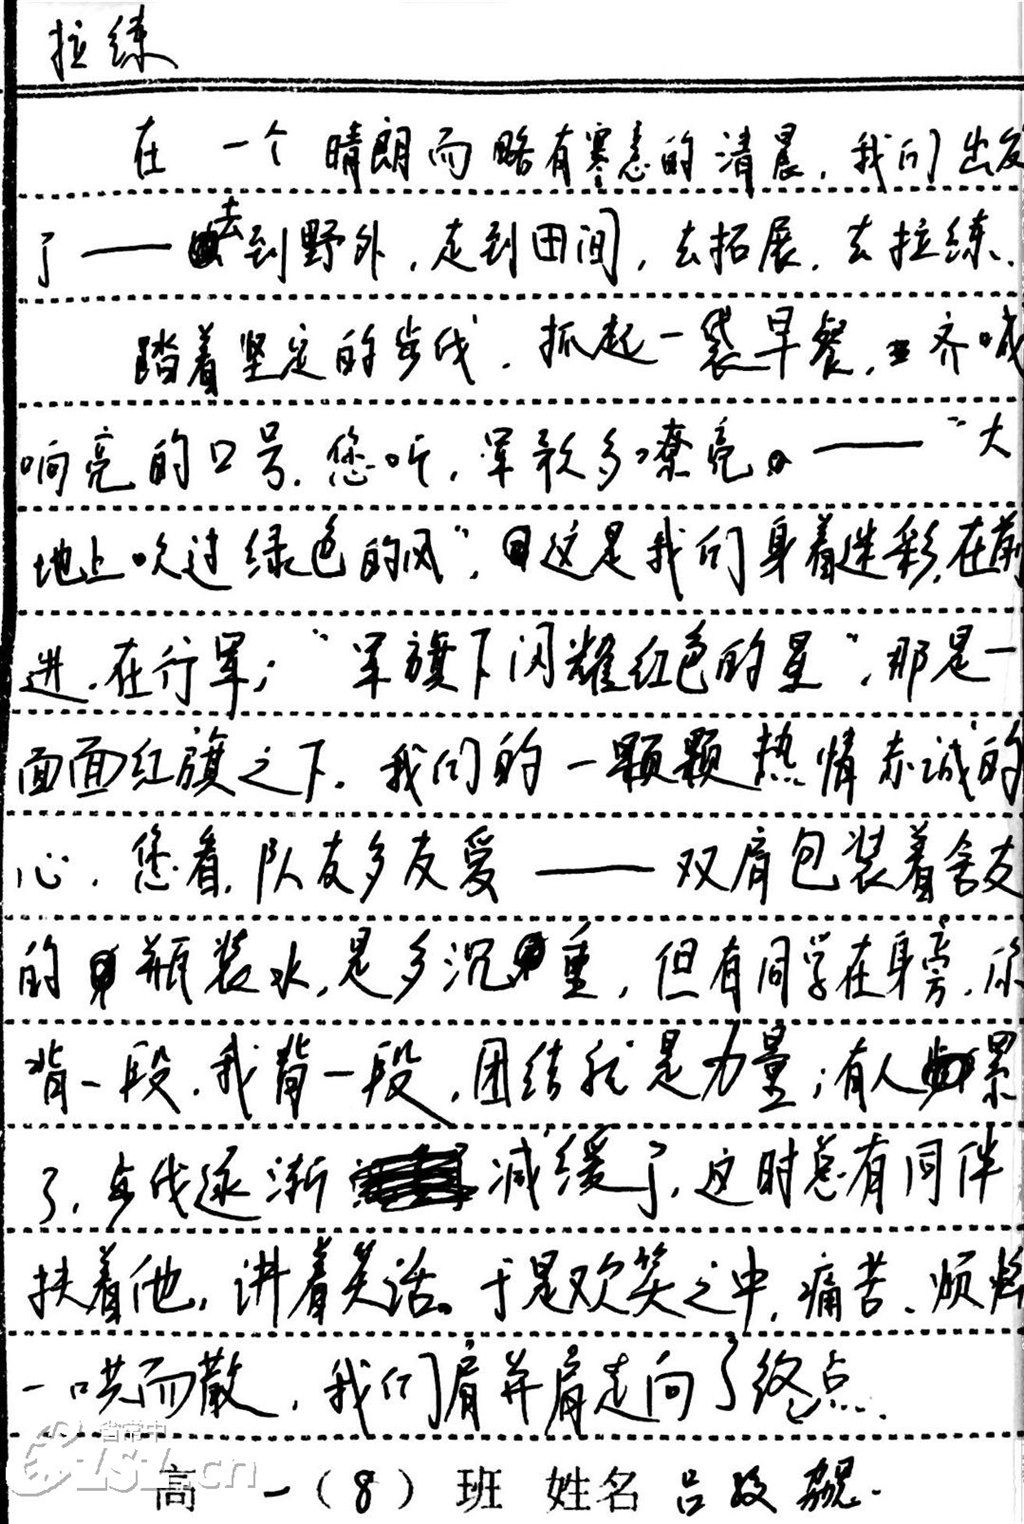 拉练
在一个晴朗而略有寒意的清晨，我们出发
了——去到野外，走到田间，去拓展，去拉练．
踏着坚定的步伐，抓起一袋早餐，齐喊
响亮的口号．您听，军歌多嘹亮——“大
地上吹过绿色的风”，这是我们身着迷彩，在前
进，在行军；“军旗下闪耀红色的星”，那是一
面面红旗之下，我们的一颗颗热情赤诚的
心．您看，队友多友爱——双肩包装着舍友
的瓶装水，是多沉重，但有同学在身旁，你
背一段，我背一段，团结就是力量；有人累
了，步伐逐渐减缓了，这时总有同伴
扶着他，讲着笑话。于是欢笑之中，痛苦、烦恼
一哄而散，我们肩并肩走向了终点．
省常中
高一（8）班 姓名 吕